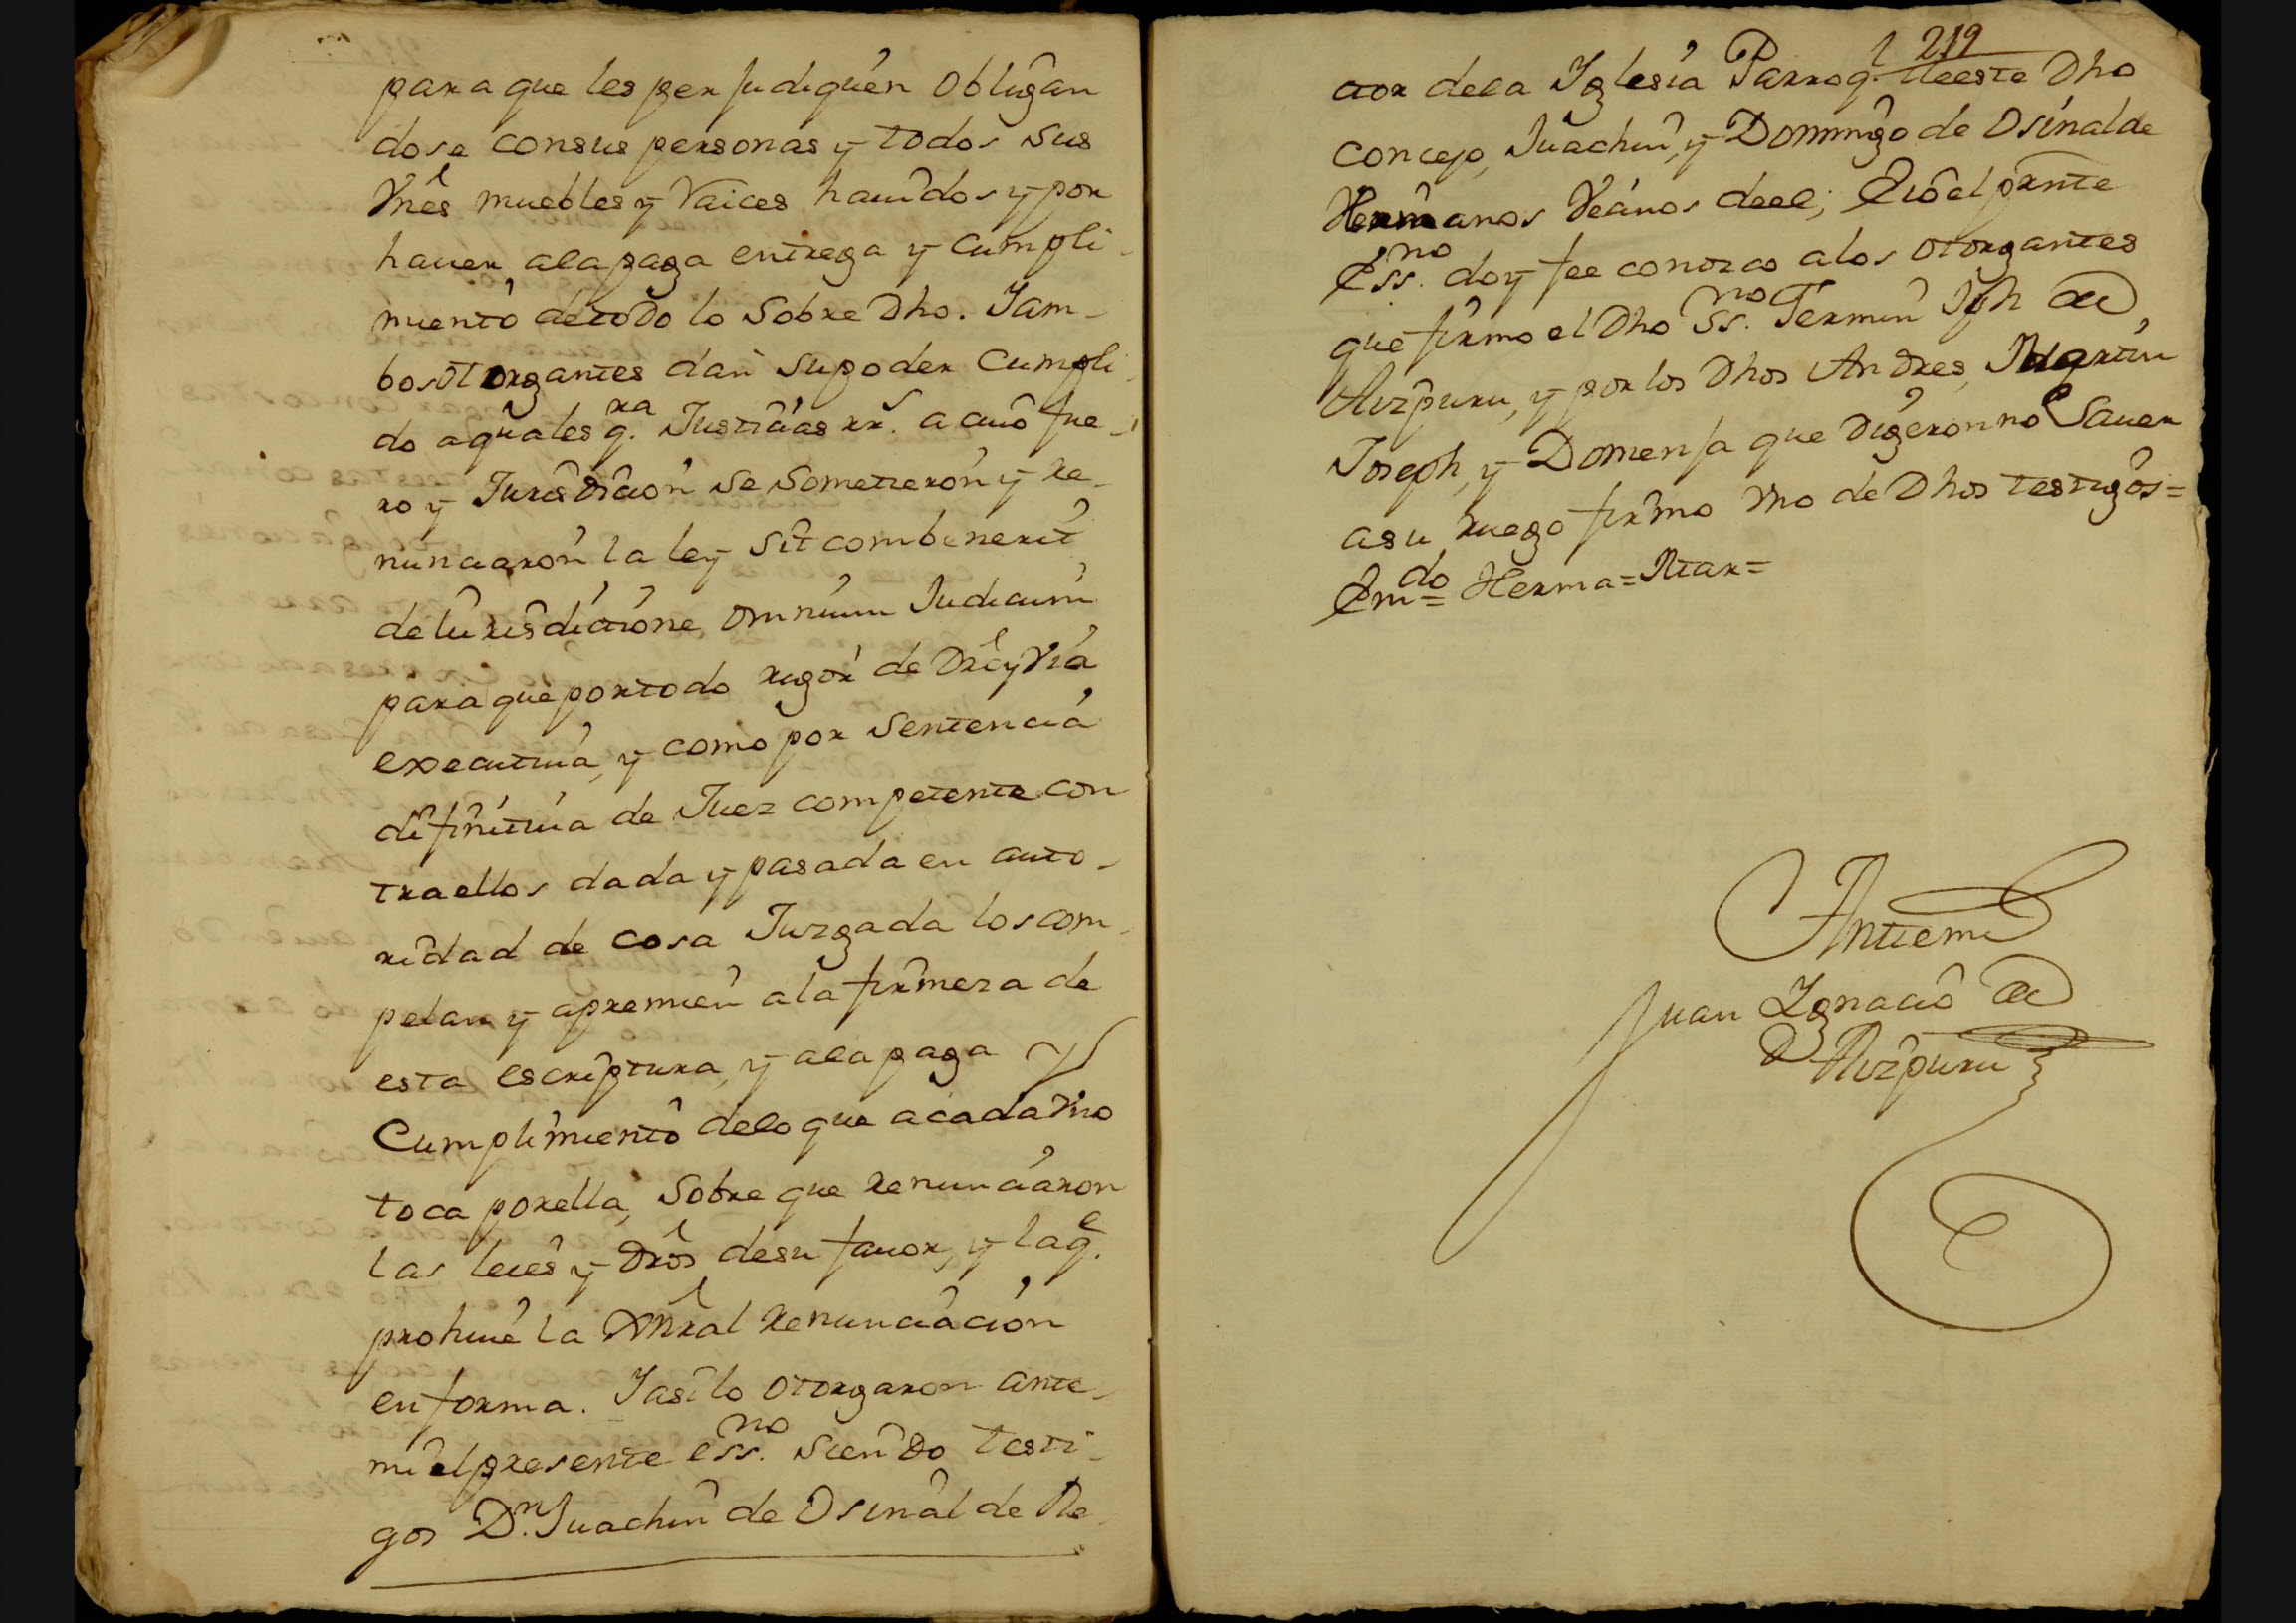 para que les perjudiquen obligan
dose con sus personas y todos sus
Vnes muebles y Raices hauidos y por
hauer, ala paga entrega y cumpli-
miento detodo lo Sobre Dho. Yam-
bos otorgantes dan su poder Cumpli-
do aquales q.ra Justicias rs. a cuio fue-
ro y Jurisdicion se sometieron y Re-
nunciaron la ley sit combenerit
de Jurisdictione omnium Judicum
para que portodo rigor de Dro y Via
executiua, y como por Sentencia
difinitiua de Juez competente con
tra ellos dada y pasada en auto-
ridad de cosa Juzgada los com-
pelan y apremien ala firmeza de
esta escriptura, y ala paga y
Cumplimiento delo que acada Vno
toca porella, Sobre que Renunciaron
las leies y Dros desu fauor, y la q.e
prohiue la Gnral Renunciacion
en forma. Yasilo otorgaron ante-
mi el presente ess.no siendo testi-
gos D.n Juachin de Osinalde Re-
219
ctor dela Yglesia Parroq.l deeste Dho
concejo, Juachin, y Domingo de Osinalde
Hermanos Veanos deel; E io el prnte
Ess.no doy fee conozco alos otorgantes
que firmo el Dho Ss.no Fermin Jph de
Aizpuru, y por los Dhos Andres, Martin
Joseph, y Domenja que digeron no Sauer
asu ruego firmo Vno de Dhos testigos=
Em.do= Herma= Mar=
Antemi
Juan Ygnacio de
Aizpuru